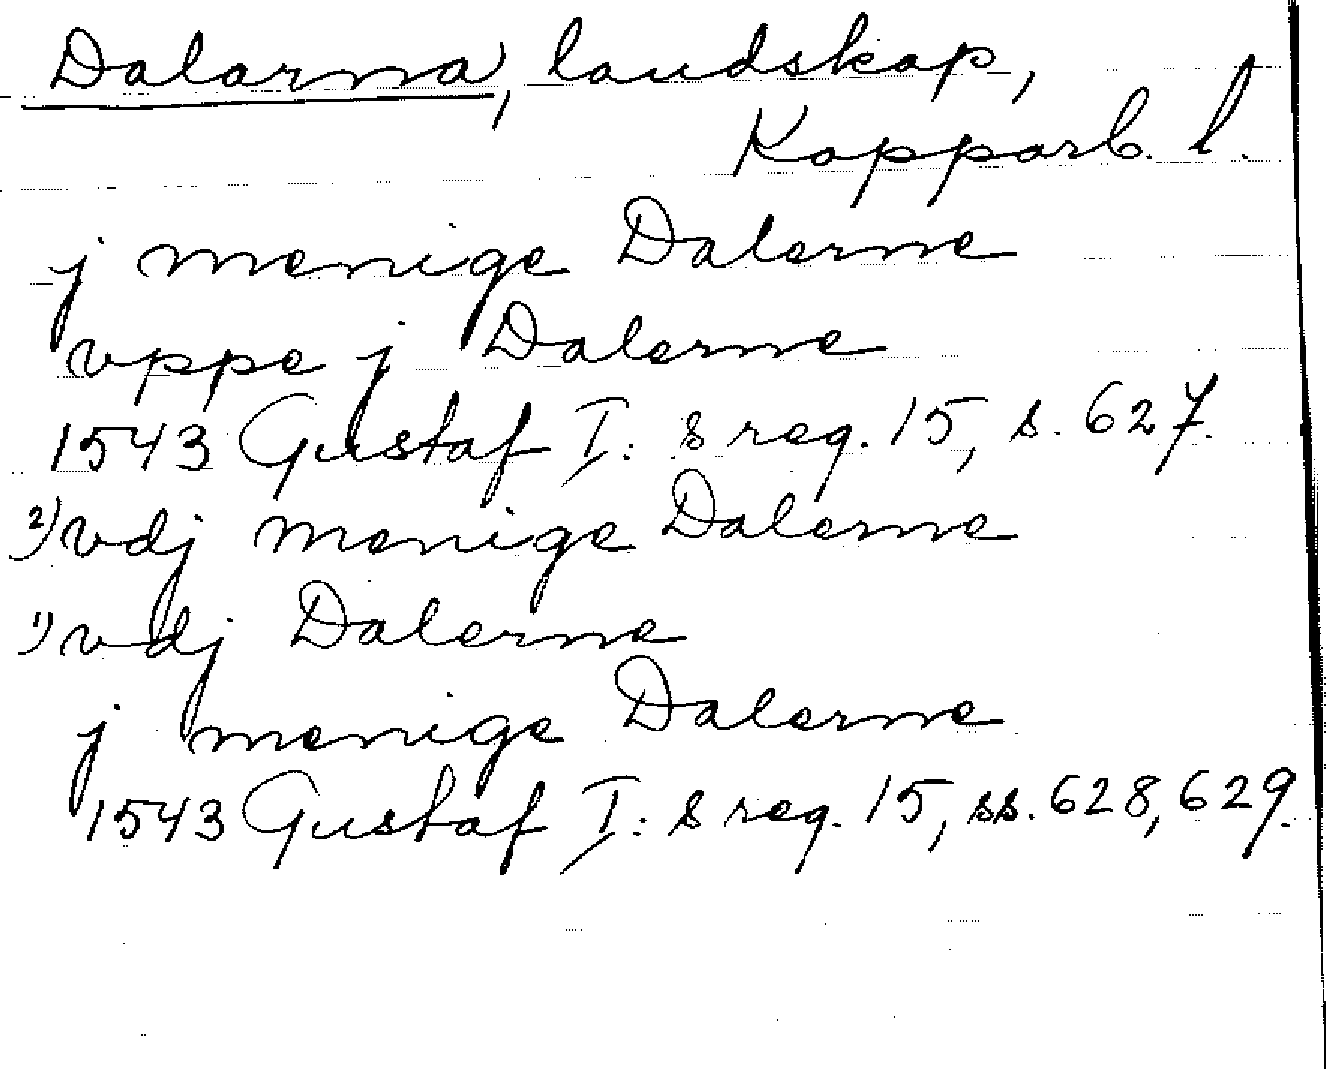 Dalarna, landskap,
Kopparb. l.
j menige Dalerne
vppe j Dalerne
1543 Gustaf I:s reg. 15, s. 627.
2) vdj menige Dalerne
1) vdj Dalerne
j menige Dalerne
1543 Gustaf I:s reg. 15, ss. 628, 629.